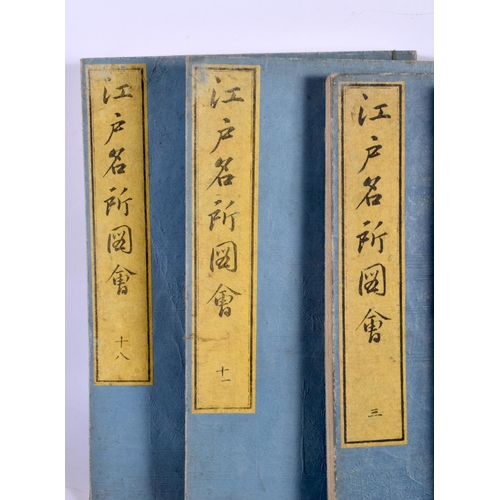 江戸名所図會
十八
江戸名所図會
十一
江戸名所図會
三